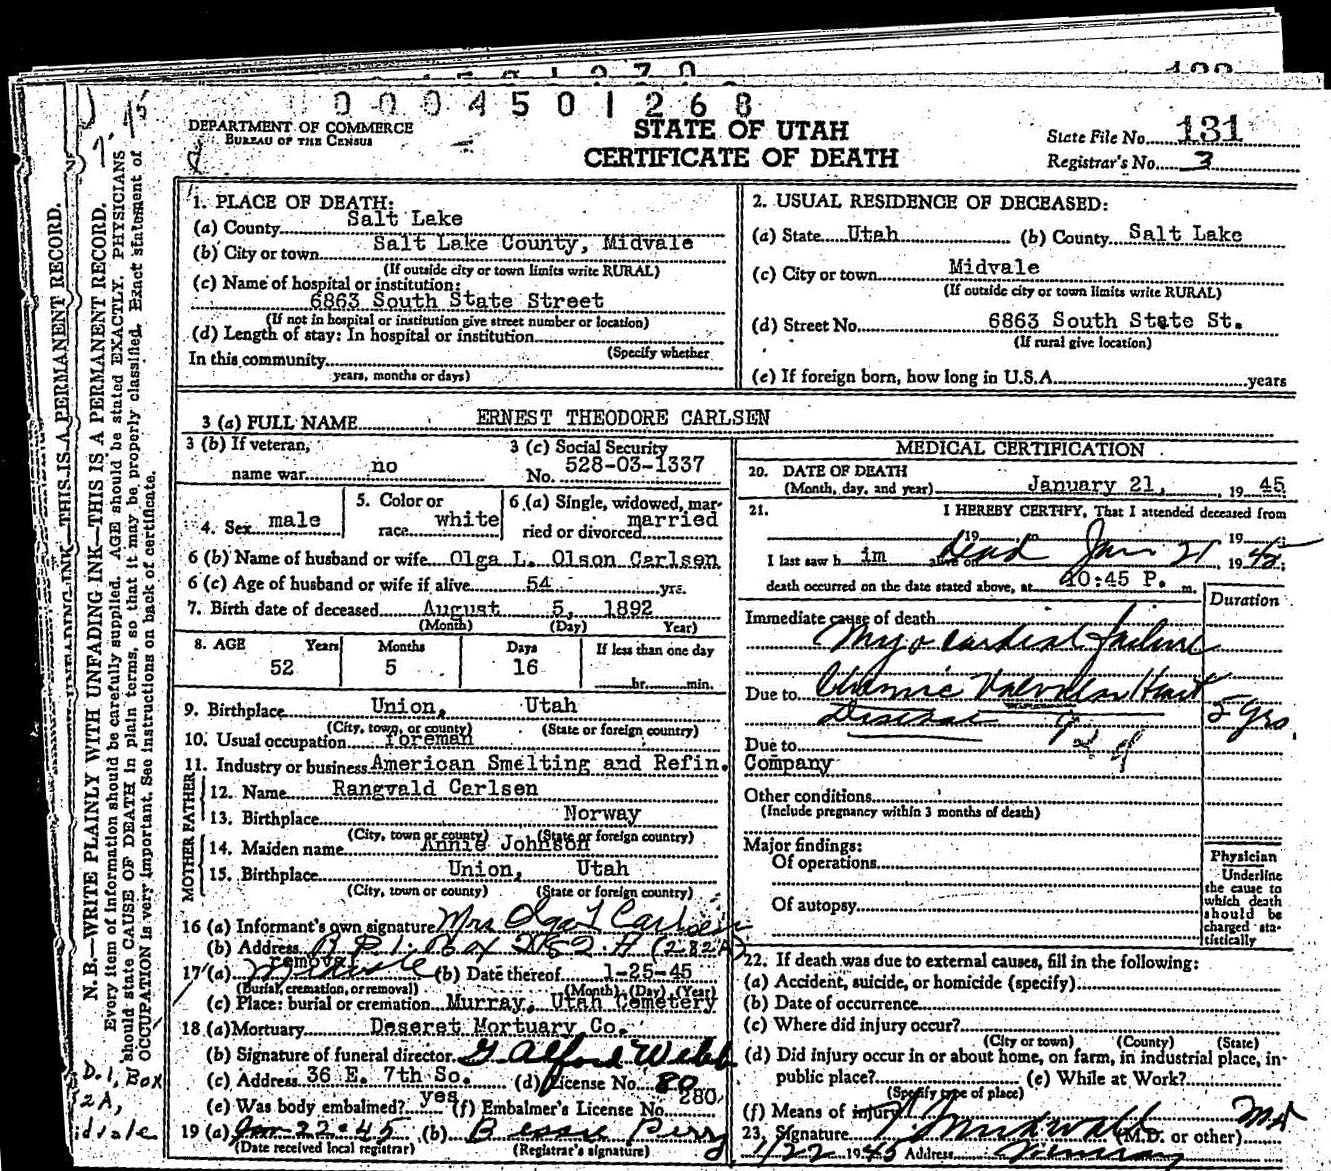 0004501268
DEPARTMENT OF COMMERCE
BUREAU OF THE CENSUS
STATE OF UTAH
CERTIFICATE OF DEATH
State File No. 131
Registrar's No. 3
1. PLACE OF DEATH:
(a) County Salt Lake
(b) City or town Salt Lake County, Midvale
(If outside city or town limits write RURAL)
(c) Name of hospital or institution:
6863 South State Street
(If not in hospital or institution give street number or location)
(d) Length of stay: In hospital or institution
(Specify whether
In this community
years, months or days)
2. USUAL RESIDENCE OF DECEASED:
(a) State Utah (b) County Salt Lake
(c) City or town Midvale
(If outside city or town limits write RURAL)
(d) Street No. 6863 South State St.
(If rural give location)
(e) If foreign born, how long in U.S.A. years
3 (a) FULL NAME ERNEST THEODORE CARLSEN
3 (b) If veteran,
name war no
3 (c) Social Security
No. 528-03-1337
4. Sex male
5. Color or
race white
6 (a) Single, widowed, mar-
ried or divorced married
6 (b) Name of husband or wife Olga L. Olson Carlsen
6 (c) Age of husband or wife if alive 54 yrs.
7. Birth date of deceased August 5, 1892
(Month) (Day) Year)
8. AGE Years Months Days If less than one day
52 5 16 hr. min.
9. Birthplace Union, Utah
(City, town, or county) (State or foreign country)
10. Usual occupation foreman
11. Industry or business American Smelting and Refin.
FATHER
12. Name Rangvald Carlsen
13. Birthplace Norway
(City, town or county) (State or foreign country)
MOTHER
14. Maiden name Annie Johnson
15. Birthplace Union, Utah
(City, town or county) (State or foreign country)
16 (a) Informant's own signature Mrs Olga L Carlsen
(b) Address R D 1. Box 282 A (282A)
17 (a) removal Midvale (b) Date thereof 1-25-45
(Burial, cremation, or removal) (Month) (Day) (Year)
(c) Place: burial or cremation Murray, Utah Cemetery
18 (a) Mortuary Deseret Mortuary Co.
(b) Signature of funeral director G Alford Webb
(c) Address 36 E. 7th So. (d) License No. 80
(e) Was body embalmed? yes (f) Embalmer's License No. 280
19 (a) Jan 22-45 (b) Bessie Perry
(Date received local registrar) (Registrar's signature)
MEDICAL CERTIFICATION
20. DATE OF DEATH
(Month, day, and year) January 21, 19 45
21. I HEREBY CERTIFY, That I attended deceased from
19 19
I last saw him alive on dead Jan 21 1945;
death occurred on the date stated above, at 10:45 P. m.
Duration
Immediate cause of death
Myocardial failure
Due to Chronic Valvular Heart
Disease 5 yrs
92d
Due to
Company
Other conditions
(Include pregnancy within 3 months of death)
Major findings:
Of operations
Of autopsy
Physician
Underline
the cause to
which death
should be
charged sta-
tistically
22. If death was due to external causes, fill in the following:
(a) Accident, suicide, or homicide (specify)
(b) Date of occurrence
(c) Where did injury occur?
(City or town) (County) (State)
(d) Did injury occur in or about home, on farm, in industrial place, in
public place? (e) While at Work?
(Specify type of place)
(f) Means of injury
23. Signature (M.D. or other) MD
1/22 1945 Address Murray
N. B.—WRITE PLAINLY WITH UNFADING INK—THIS IS A PERMANENT RECORD.
Every item of information should be carefully supplied. AGE should be stated EXACTLY. PHYSICIANS
should state CAUSE OF DEATH in plain terms, so that it may be properly classified. Exact statement of
OCCUPATION is very important. See instructions on back of certificate.
D. 1, Box
2A,
idvale